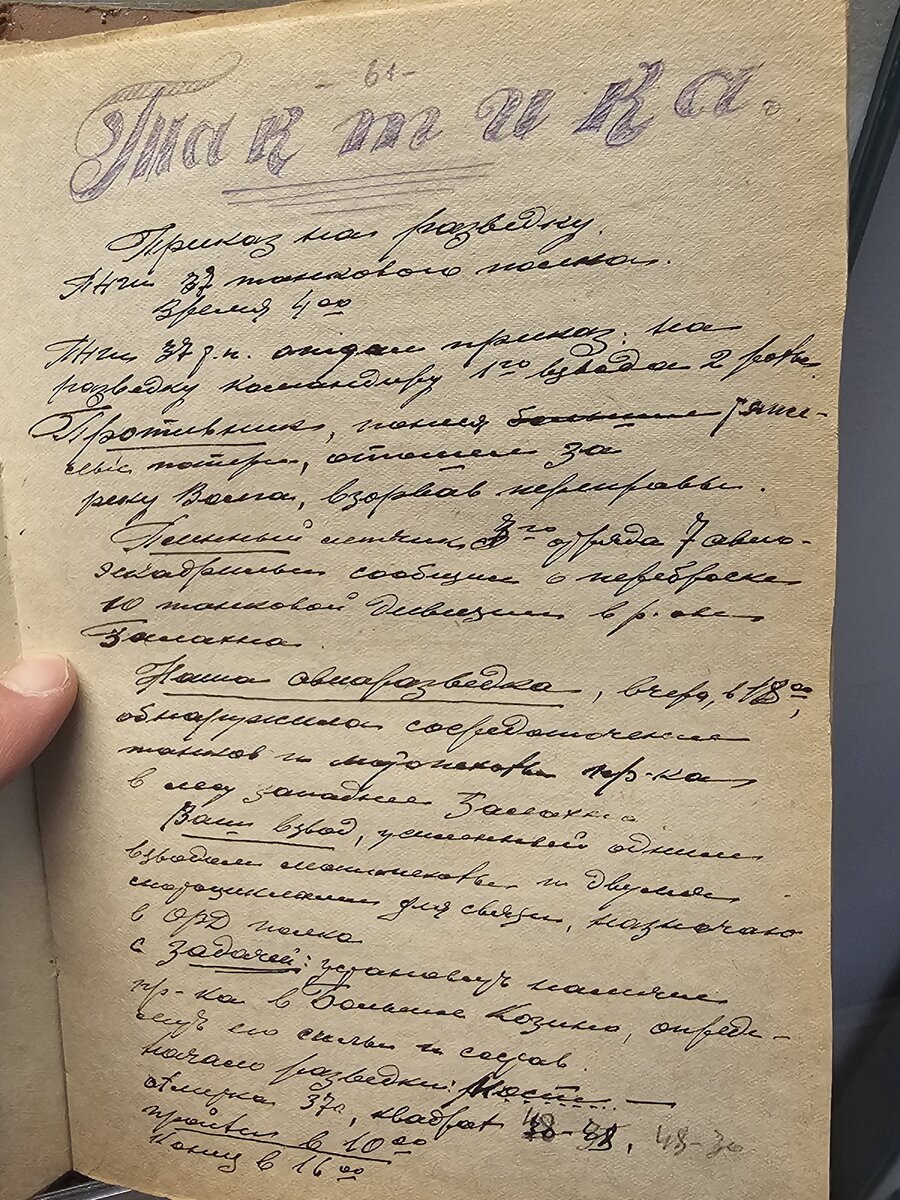 - 61 -
Тактика.
Приказ на разведку.
37 танкового полка.
Время 4⁰⁰
37 т.п. отдал приказ на
разведку командиру 1го взвода 2 роты.
Противник, понеся большие тяже-
лые потери, отошел за
реку Волга, взорвав переправы.
Пленный летчик 3го отряда 7 авиа-
эскадрильи сообщил о переброске
10 танковой дивизии в р-он
Наша авиаразведка, вчера, в 18⁰⁰,
обнаружила сосредоточение
танков и мотопехоты пр-ка
в лесу западнее
Ваш взвод, усиленный одним
взводом мотопехоты и двумя
мотоциклами для связи, назначаю
в ОРД полка
с задачей: установить наличие
пр-ка в Большие Козино, опреде-
лить его силы и состав.
Начало разведки: Мост —
отметка 37, квадрат 48-38, 48-30
пройти в 10⁰⁰
Конец в 16⁰⁰